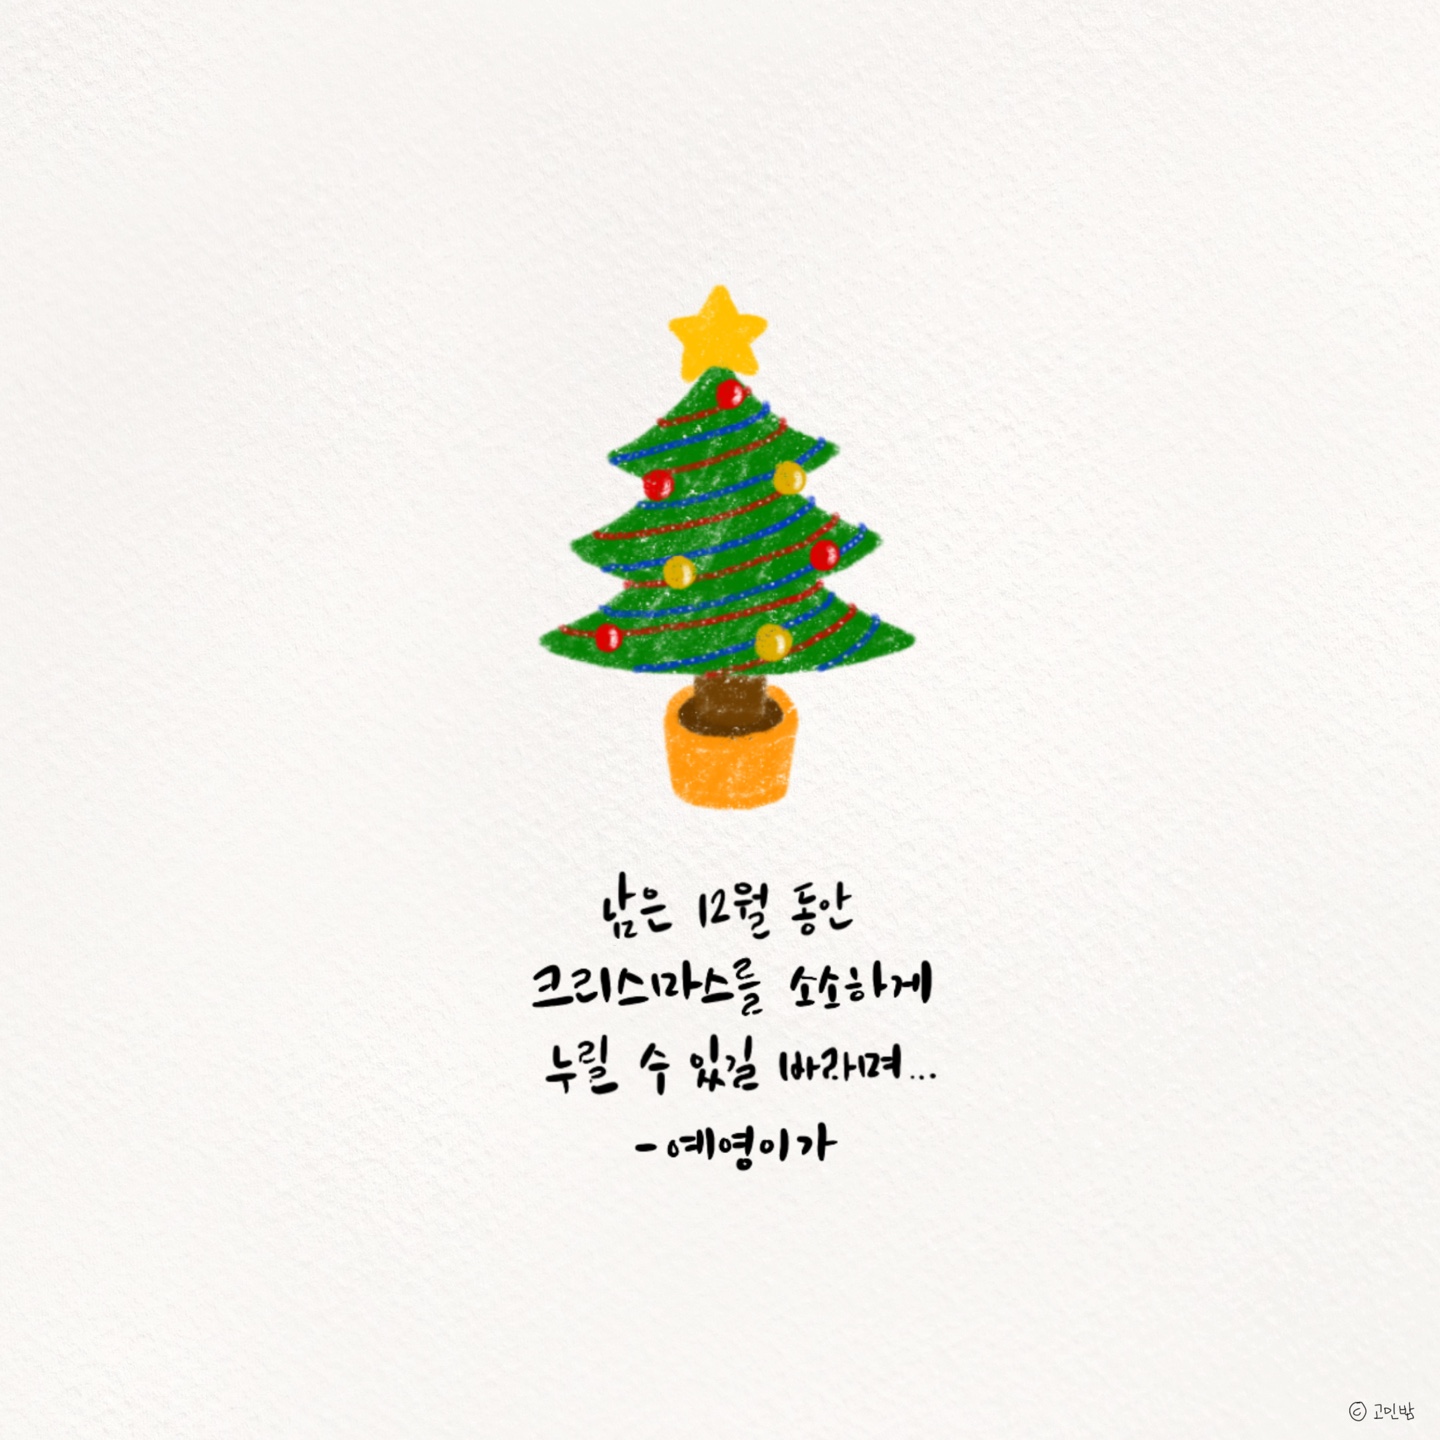 남은 12월 동안
크리스마스를 소소하게
누릴 수 있길 바라며...
-예영이가
ⓒ 고민밤